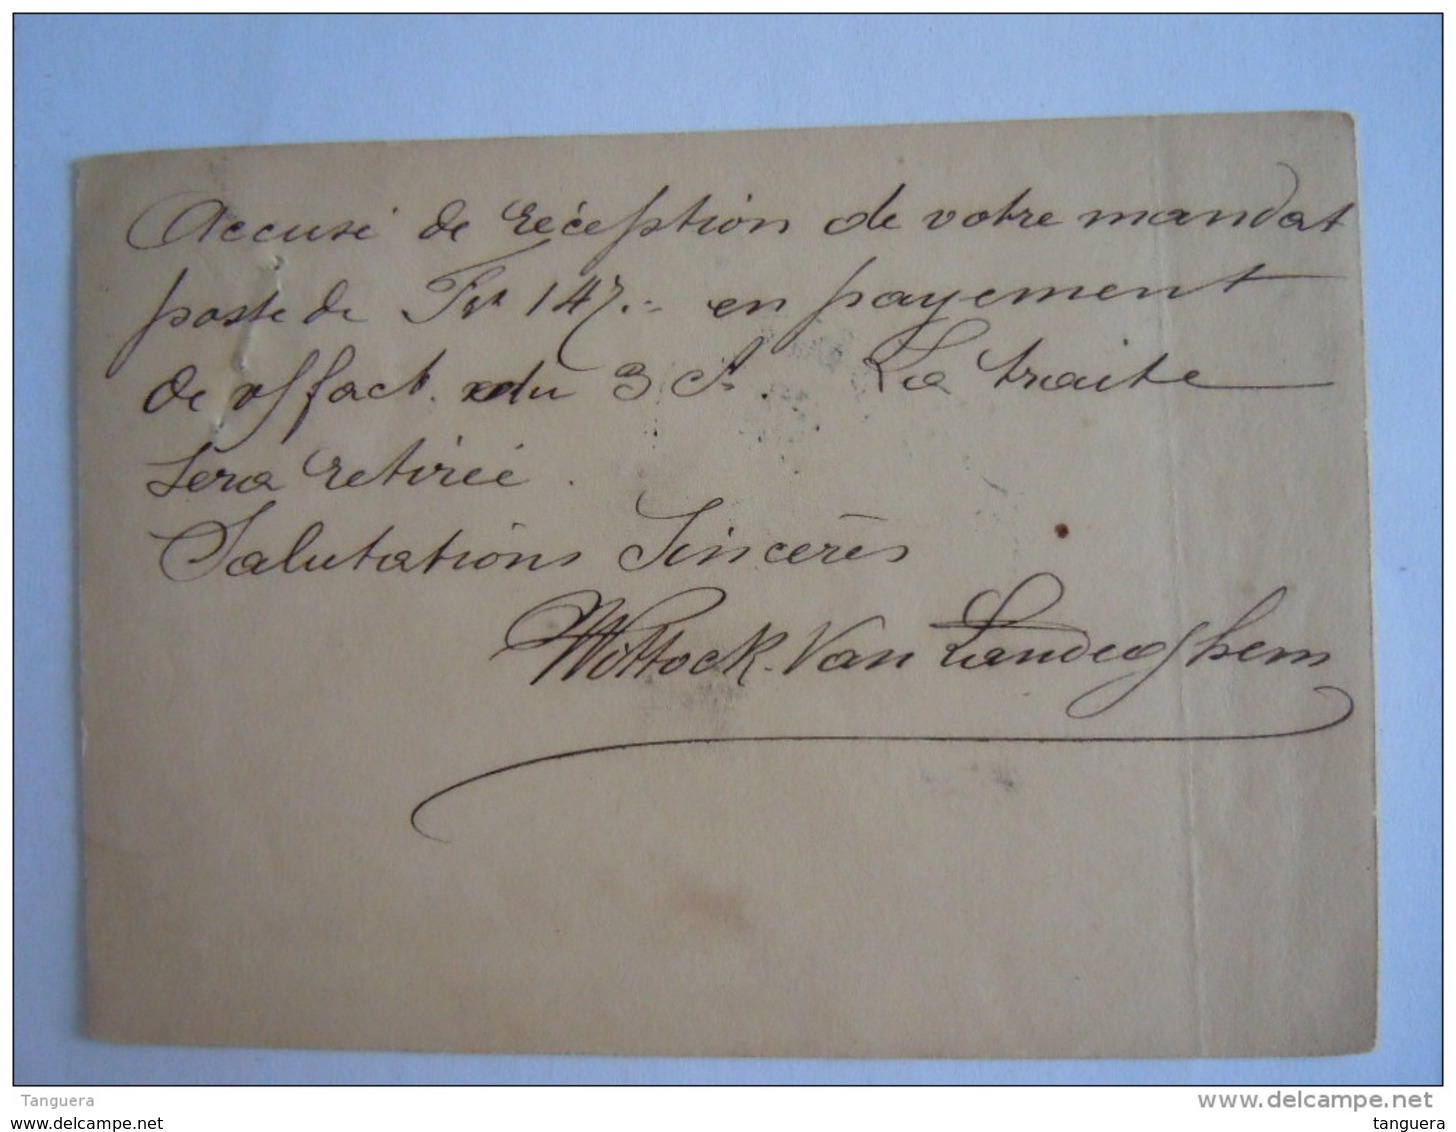 Accusé de réception de votre mandat
poste de Frs 147.= en payement
de n/ fact. du 3 ct. La traite
sera retirée.
Salutations Sincères
Wittock-Van Landeghem
Tanguera
www.delcampe.net
www.delcampe.net
tanguera